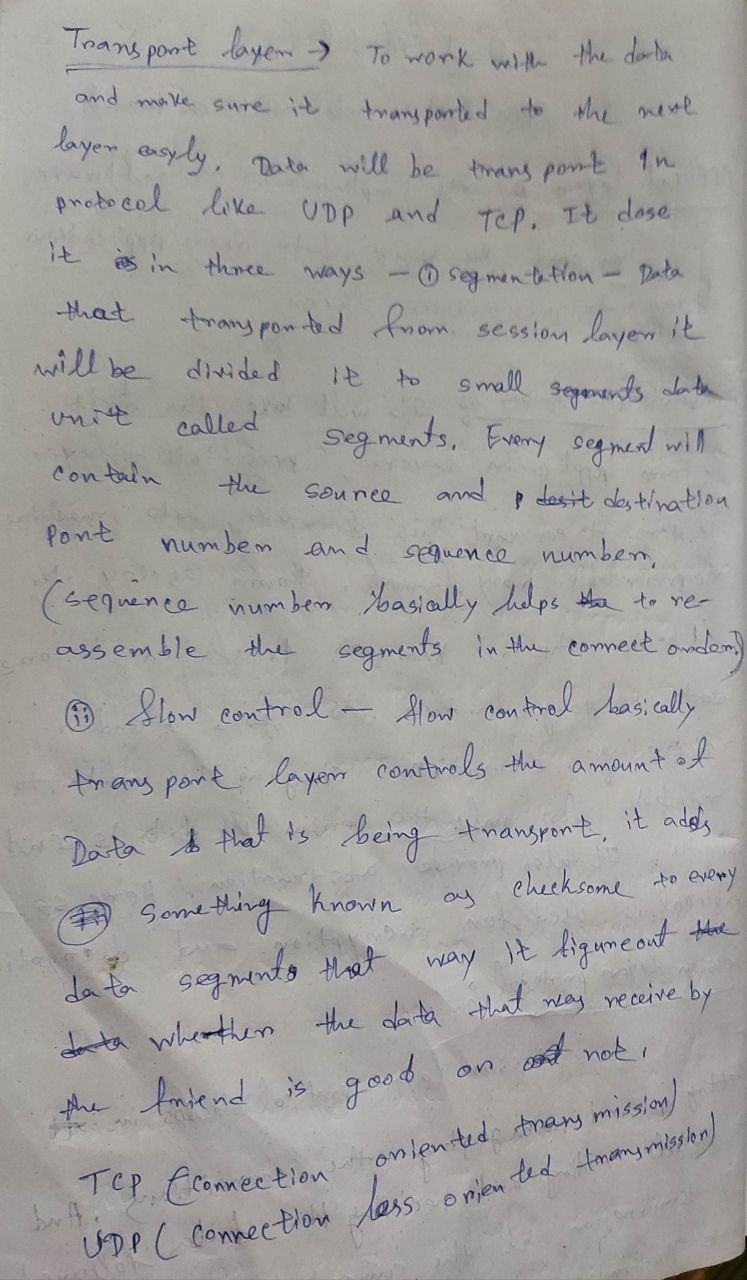 Transport layer → To work with the data
and make sure it transported to the next
layer easyly. Data will be transport in
protocol like UDP and TCP. It dose
it in three ways - ① segmentation - Data
that transported from session layer it
will be divided it to small segments data
unit called segments. Every segment will
contain the source and destination
port number and sequence number,
(sequence number basically helps to re-
assemble the segments in the correct order.)
ⅱ flow control - flow control basically
transport layer controls the amount of
Data that is being transport, it adds
something known as checksome to every
data segments that way it figureout
whether the data that was receive by
the friend is good or not.
TCP (connection oriented transmission)
UDP (connection less oriented transmission)